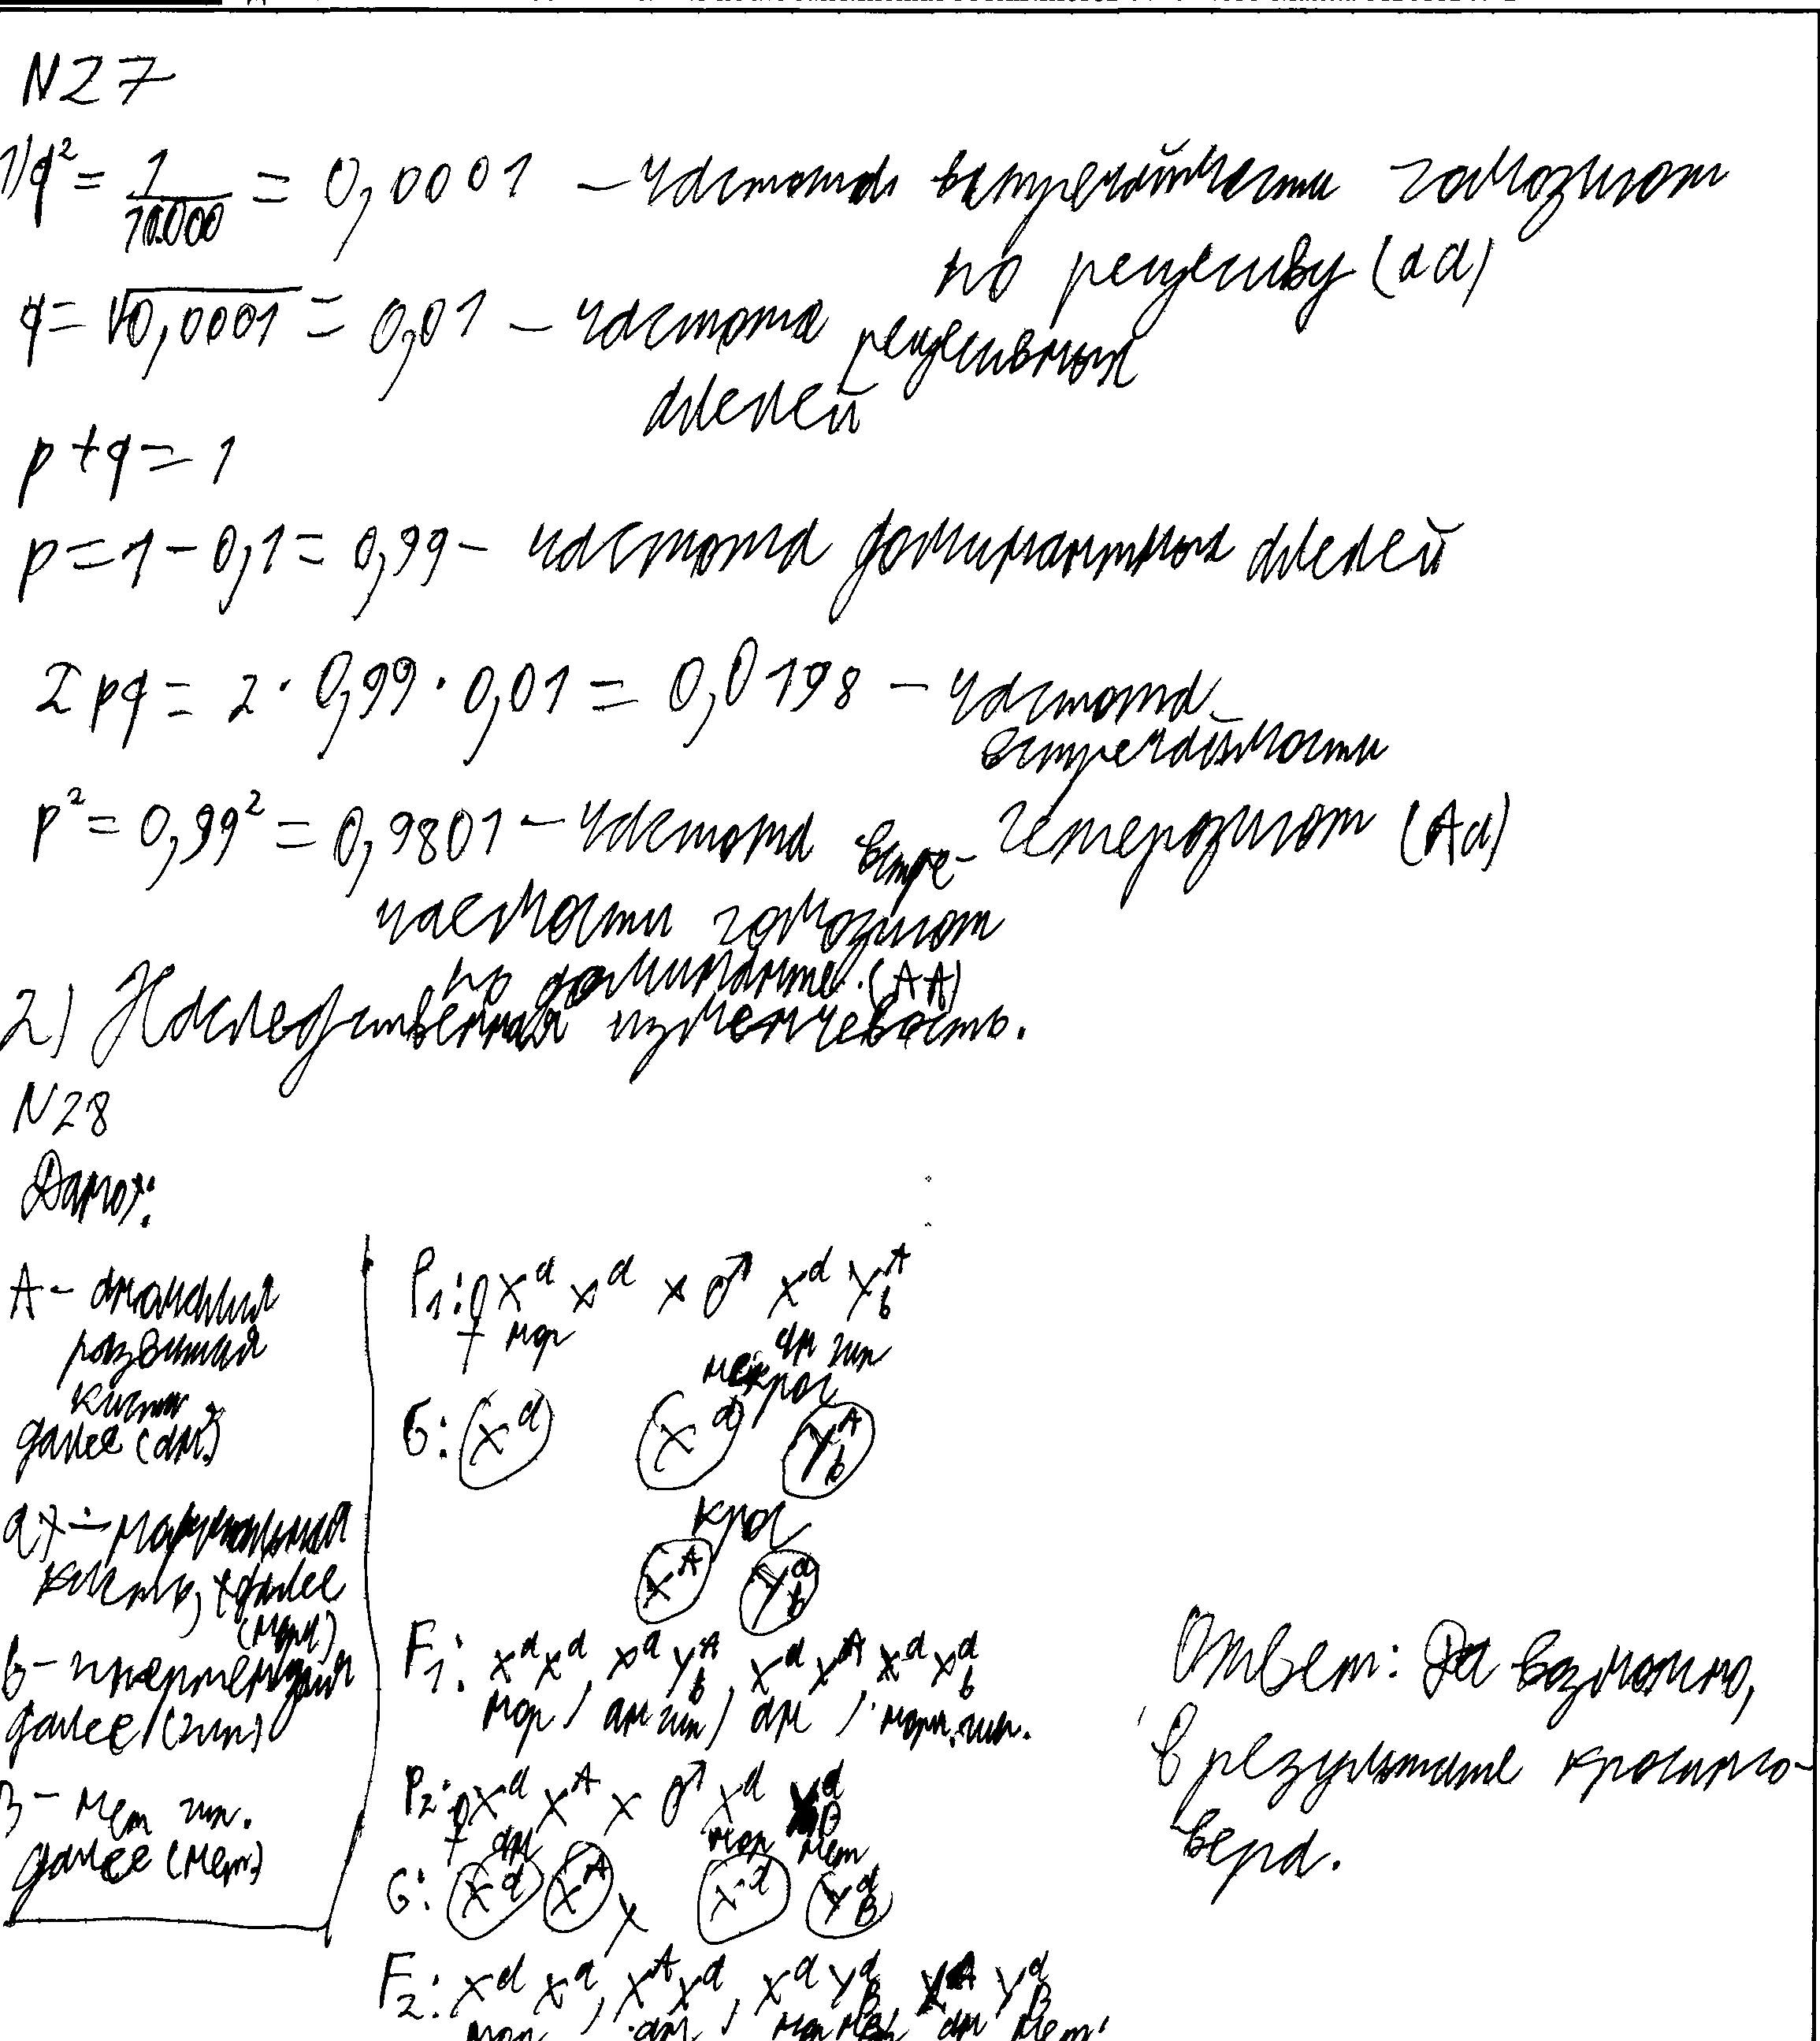 N27
1) q² = 1/10.000 = 0,0001 – частота встречаймости гомозигот
по рецесиву (aa)
q = √0,0001 = 0,01 – частота рецесивных
аллелей
p + q = 1
p = 1 – 0,1 = 0,99 – частота доминантных аллелей
2pq = 2 · 0,99 · 0,01 = 0,0198 – частота
встречаймости
гетерозигот (Aa)
p² = 0,99² = 0,9801 – частота встре-
чаемости гомозигот
по доминанте. (AA)
2) Наследственная изменчевость.
N28
Дано:
A – аномалия
развития
кисти
далее (ан.)
a – нормальная
кисть, далее
(норм)
b – гипертензия
далее (гип)
B – нет гип.
далее (нет.)
P₁: ♀ Xᵃ Xᵃ x ♂ Xᵃ Yᴬb
нор ан гип
крос
G: Xᵃ Xᵃ Yᴬb
крос
Xᴬ Yᵃb
F₁: XᵃXᵃ, XᵃYᴬb, XᵃXᴬ, XᵃXᵃb
нор, ан гип, ан, норм. гип.
P₂: ♀ Xᵃ Xᴬ x ♂ Xᵃ YᵃB
ан нор нет
G: Xᵃ Xᴬ x Xᵃ YᵃB
F₂: Xᵃ Xᵃ, XᴬXᵃ, XᵃYᵃB, Xᴬ YᵃB
нор, ан, нор нет, ан нет.
Ответ: Да возможно,
в результате кросинго-
вера.